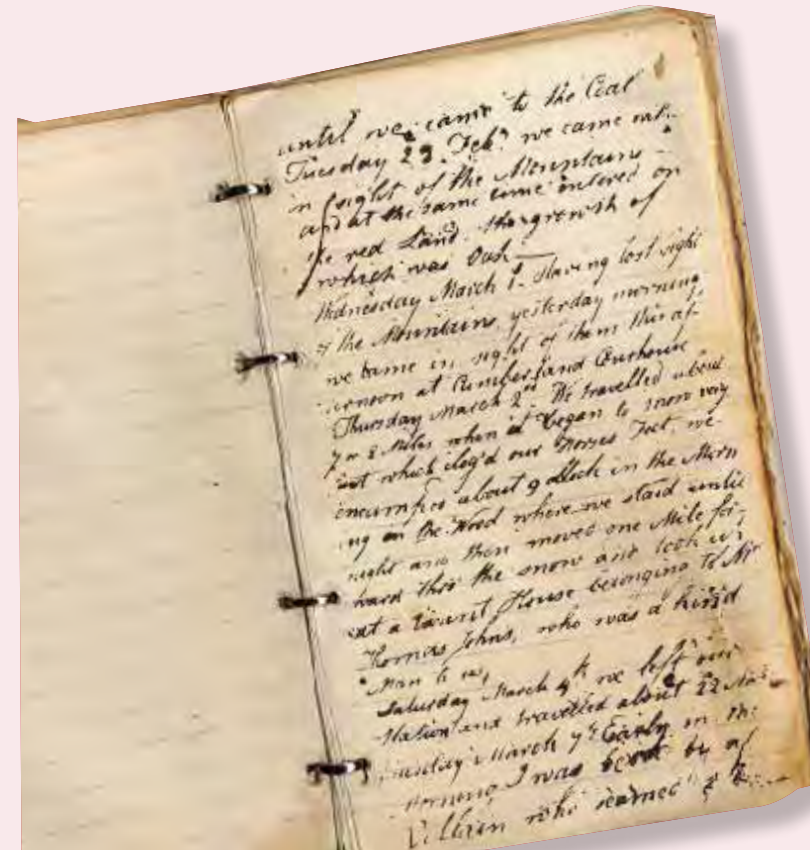 until we came to the Coal
Tuesday 28. Feb.y we came out
in sight of the Mountains
and at the same time entered on
the red Land. the growth of
which was Oak
Wednesday March 1. Having lost sight
of the Mountains yesterday morning
we came in sight of them this af-
ternoon at Cumberland Courhouse
Thursday March 2nd We travelled about
7 or 8 Miles when it began to snow very
fast which clog'd our Horses Feet. we
encampt about 9 oClock in the Morn
ing in the Wood where we staid until
night and then moved one Mile for-
ward thro the snow and took up
at a vacant House belonging to Mr
Thomas Johns, who was a kind
Man to us,
Saturday March 4th we left our
Station and travelled about 22
Tuesday March 7th Early in the
morning I was by a
Villain who seemed